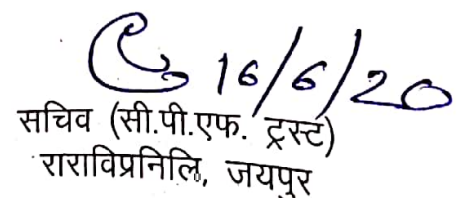 16/6/20
सचिव (सी.पी.एफ. ट्रस्ट)
राराविप्रनिलि, जयपुर